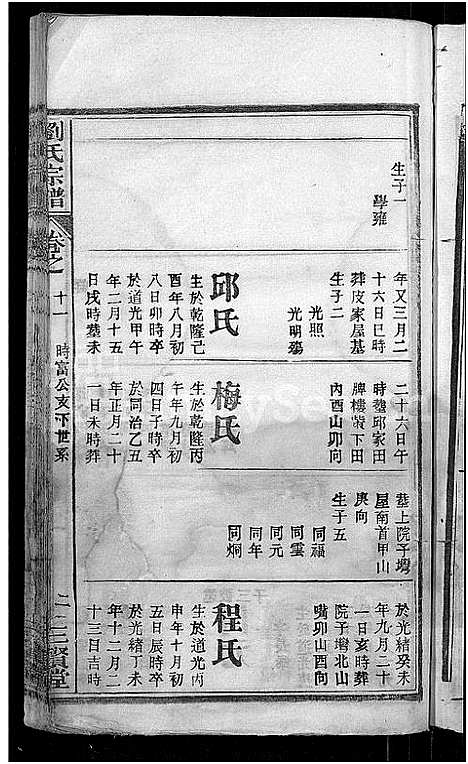 生子一
學雍
年又三月二
十六日巳時
葬皮家屋基
生子二
光照
光明殤
邱氏
生於乾隆己
酉年八月初
八日卯時卒
於道光甲午
年二月十五
日戌時塟未
二十六日午
時塟邱家田
牌樓塝下田
內酉山卯向
梅氏
生於乾隆丙
午年九月初
四日子時卒
於同治乙丑
年正月二十
一日未時葬
塟上院子塆
屋南首甲山
庚向
生子五
同福
同雲
同元
同年
同炯
於光緒癸未
年九月二十
一日亥時葬
院子塆北山
嘴卯山酉向
程氏
生於道光丙
申年十月初
五日辰時卒
於光緒丁未
年十二月二
十三日吉時
劉氏宗譜
卷之
十一
時富公支下世系
二
三賢堂